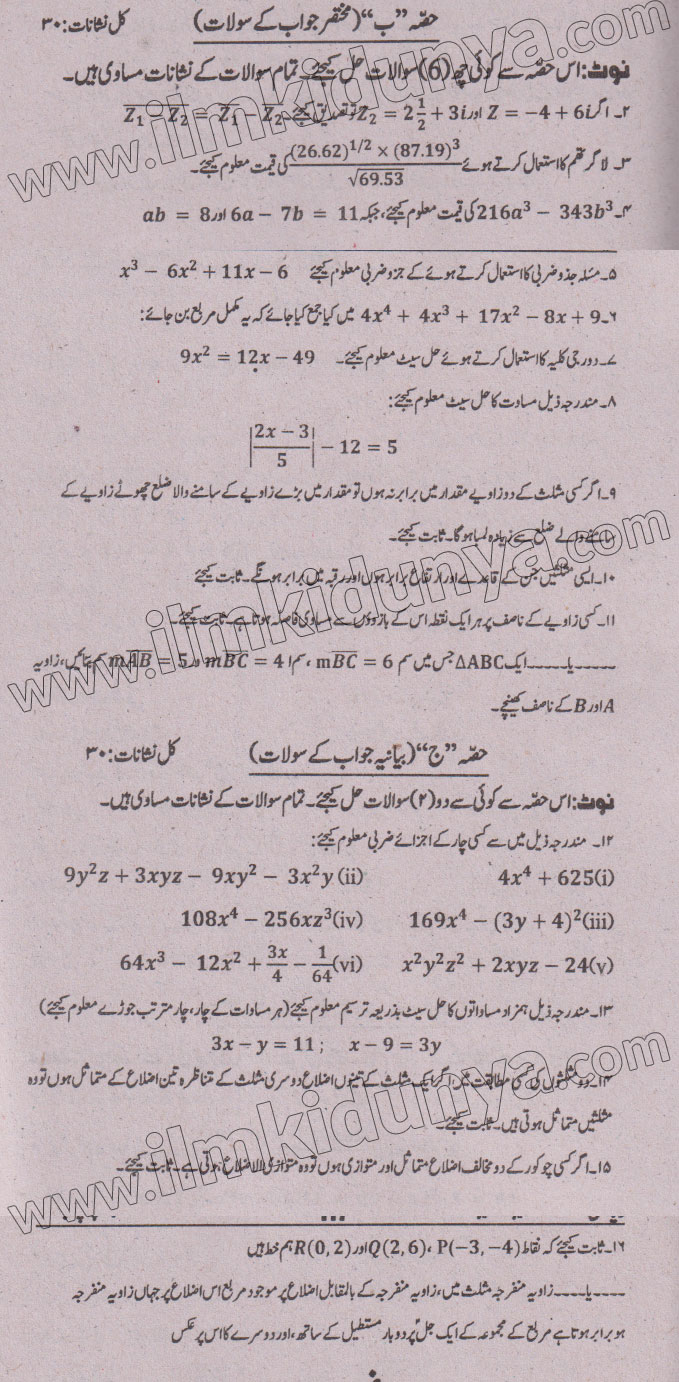 حصّہ ”ب“ (مختصر جواب کے سولات) کل نشانات: ۳۰
نوٹ: اس حصّہ سے کوئی چھ (6) سوالات حل کیجئے۔ تمام سوالات کے نشانات مساوی ہیں۔
۲۔ اگر Z = −4 + 6i اور Z₂ = 2 1/2 + 3i تو تصدیق کیجئے۔ \overline{Z₁ − Z₂} = \overline{Z₁} − \overline{Z₂}
۳۔ لاگرتھم کا استعمال کرتے ہوئے \frac{(26.62)^{1/2} × (87.19)^3}{\sqrt{69.53}} کی قیمت معلوم کیجئے۔
۴۔ 216a³ − 343b³ کی قیمت معلوم کیجئے، جبکہ 6a − 7b = 11 اور ab = 8
۵۔ مسئلہ جذو ضربی کا استعمال کرتے ہوئے کے جزو ضربی معلوم کیجئے x³ − 6x² + 11x − 6
۶۔ 4x⁴ + 4x³ + 17x² − 8x + 9 میں کیا جمع کیا جائے کہ یہ مکمل مربع بن جائے:
۷۔ دور جی کلیہ کا استعمال کرتے ہوئے حل سیٹ معلوم کیجئے۔ 9x² = 12x − 49
۸۔ مندرجہ ذیل مساوت کا حل سیٹ معلوم کیجئے:
|\frac{2x − 3}{5}| − 12 = 5
۹۔ اگر کسی مثلث کے دو زاویے مقدار میں برابر نہ ہوں تو مقدار میں بڑے زاویے کے سامنے والا ضلع چھوٹے زاویے کے
سامنے والے ضلع سے زیادہ لمبا ہوگا۔ ثابت کیجئے۔
۱۰۔ ایسی مثلثیں جن کے قاعدے اور ارتفاع برابر ہوں اور رقبہ میں برابر ہونگے۔ ثابت کیجئے
۱۱۔ کسی زاویے کے ناصف پر ہر ایک نقطہ اس کے بازوؤں سے مساوی فاصلہ ہوتا ہے۔ ثابت کیجئے۔
-----یا----- ایک ΔABC جس میں سم mBC = 6 ، سم m\overline{BC} = 4 اور m\overline{AB} = 5 سم بنائیں، زاویہ
A اور B کے ناصف کھینچے۔
حصّہ ”ج“ (بیانیہ جواب کے سولات) کل نشانات: ۳۰
نوٹ: اس حصّہ سے کوئی سے دو (۲) سوالات حل کیجئے۔ تمام سوالات کے نشانات مساوی ہیں۔
۱۲۔ مندرجہ ذیل میں سے کسی چار کے اجزائے ضربی معلوم کیجئے:
(i) 4x⁴ + 625 (ii) 9y²z + 3xyz − 9xy² − 3x²y
(iii) 169x⁴ − (3y + 4)² (iv) 108x⁴ − 256xz³
(v) x²y²z² + 2xyz − 24 (vi) 64x³ − 12x² + \frac{3x}{4} − \frac{1}{64}
۱۳۔ مندرجہ ذیل ہمزاد مساداتوں کا حل سیٹ بذریعہ ترسیم معلوم کیجئے (ہر مساوات کے چار، چار مترتب جوڑے معلوم کیجئے)
3x − y = 11 ; x − 9 = 3y
۱۴۔ دو مثلثوں کی کسی مطابقت میں اگر ایک مثلث کے تینوں اضلاع دوسری مثلث کے متناظرہ تین اضلاع کے متماثل ہوں تو وہ
مثلثیں متماثل ہوتی ہیں۔ ثابت کیجئے۔
۱۵۔ اگر کسی چوکور کے دو مخالف اضلاع متماثل اور متوازی ہوں تو وہ متوازی الاضلاع ہوتی ہے۔ ثابت کیجئے۔
۱۶۔ ثابت کیجئے کہ نقاط P(−3, −4) ، Q(2, 6) اور R(0, 2) ہم خط ہیں
----یا---- زاویہ منفرجہ مثلث میں، زاویہ منفرجہ کے بالمقابل اضلاع پر موجود مربع اس اضلاع پر جہاں زاویہ منفرجہ
ہو برابر ہوتا ہے مربع کے مجموعہ کے ایک جل پر دو بار مستطیل کے ساتھ، اور دوسرے کا اس پر عکس
www.ilmkidunya.com
www.ilmkidunya.com
www.ilmkidunya.com